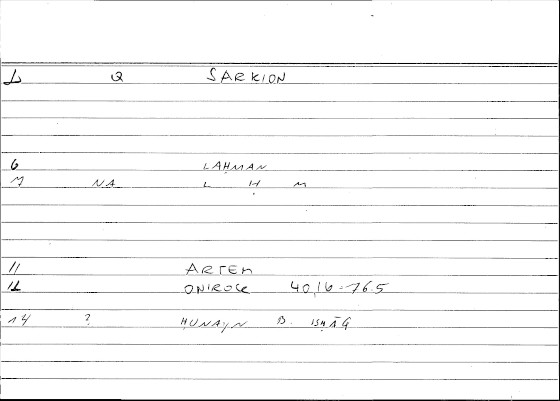 1 Q SARKION
6 LAḤMAN
7 NA L Ḥ M
11 ARTEM
12 ONIROCR 40,16 = 76.5
14 ? ḤUNAYN B. ISḤĀQ